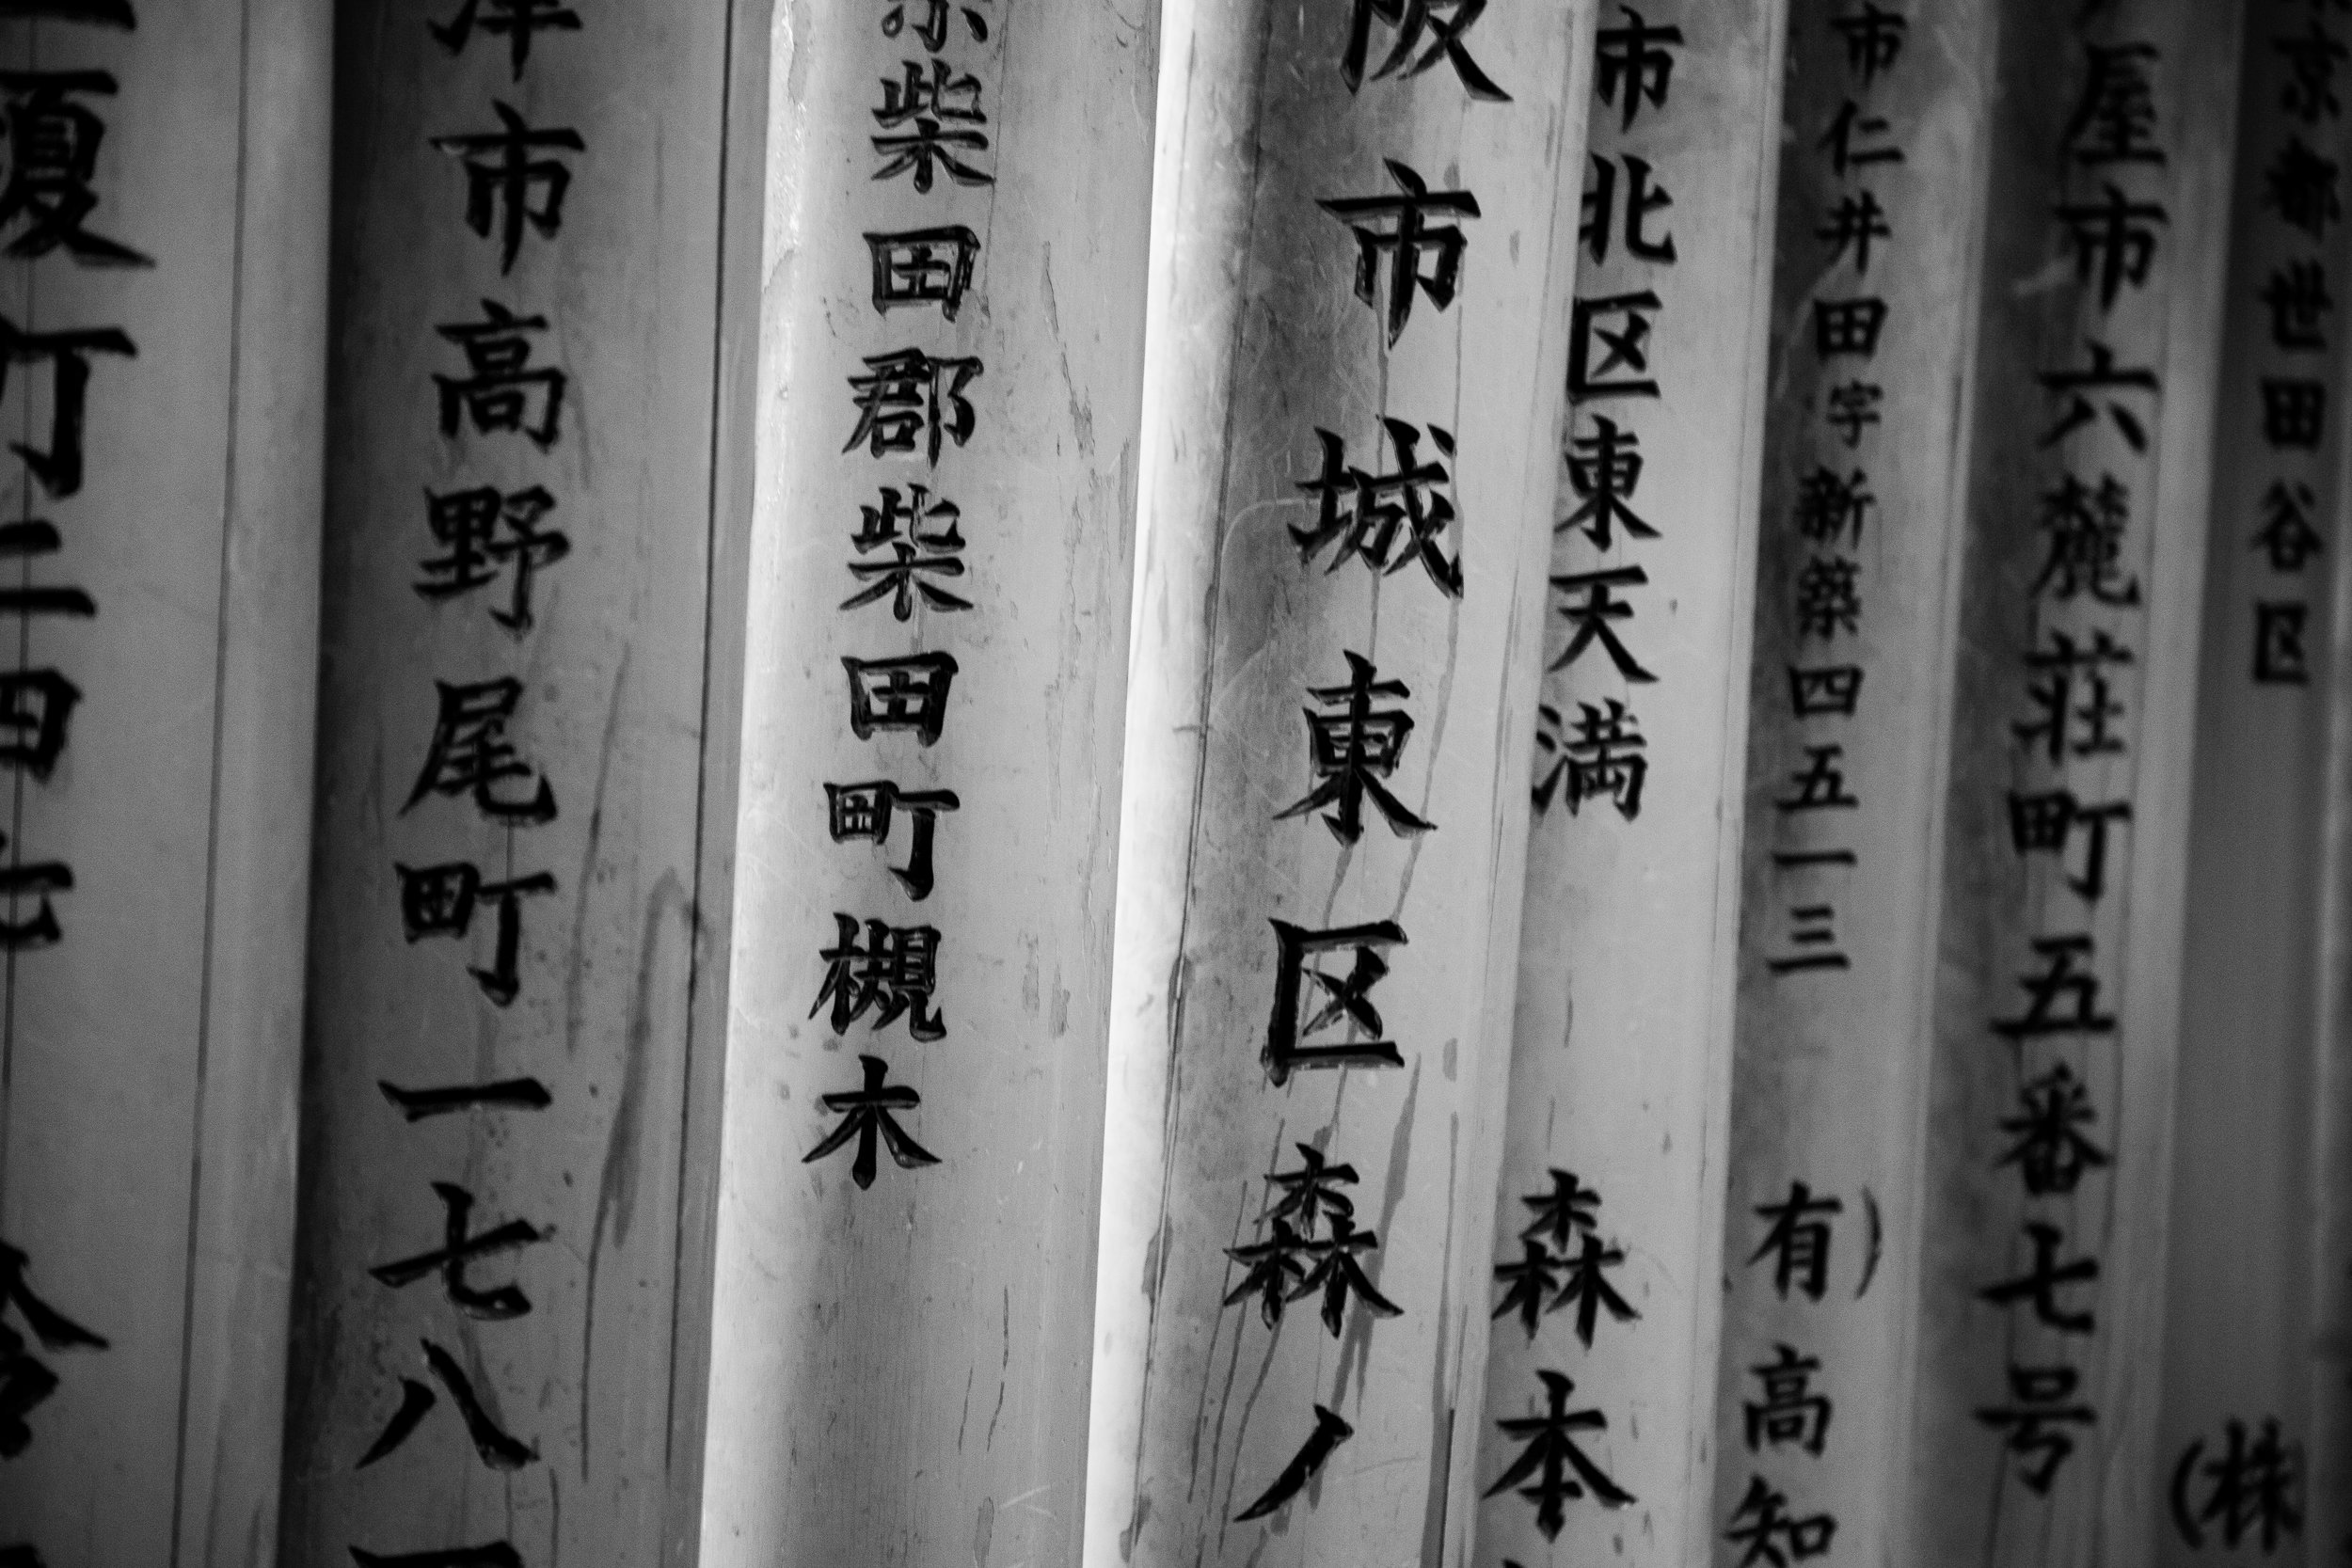 京都世田谷区 (株
屋市六麓荘町五番七号
市仁井田字新築四五一三 (有)高知
市北区東天満 森本
阪市城東区森ノ
柴田郡柴田町槻木
津市高野尾町一七八
榎町二四七